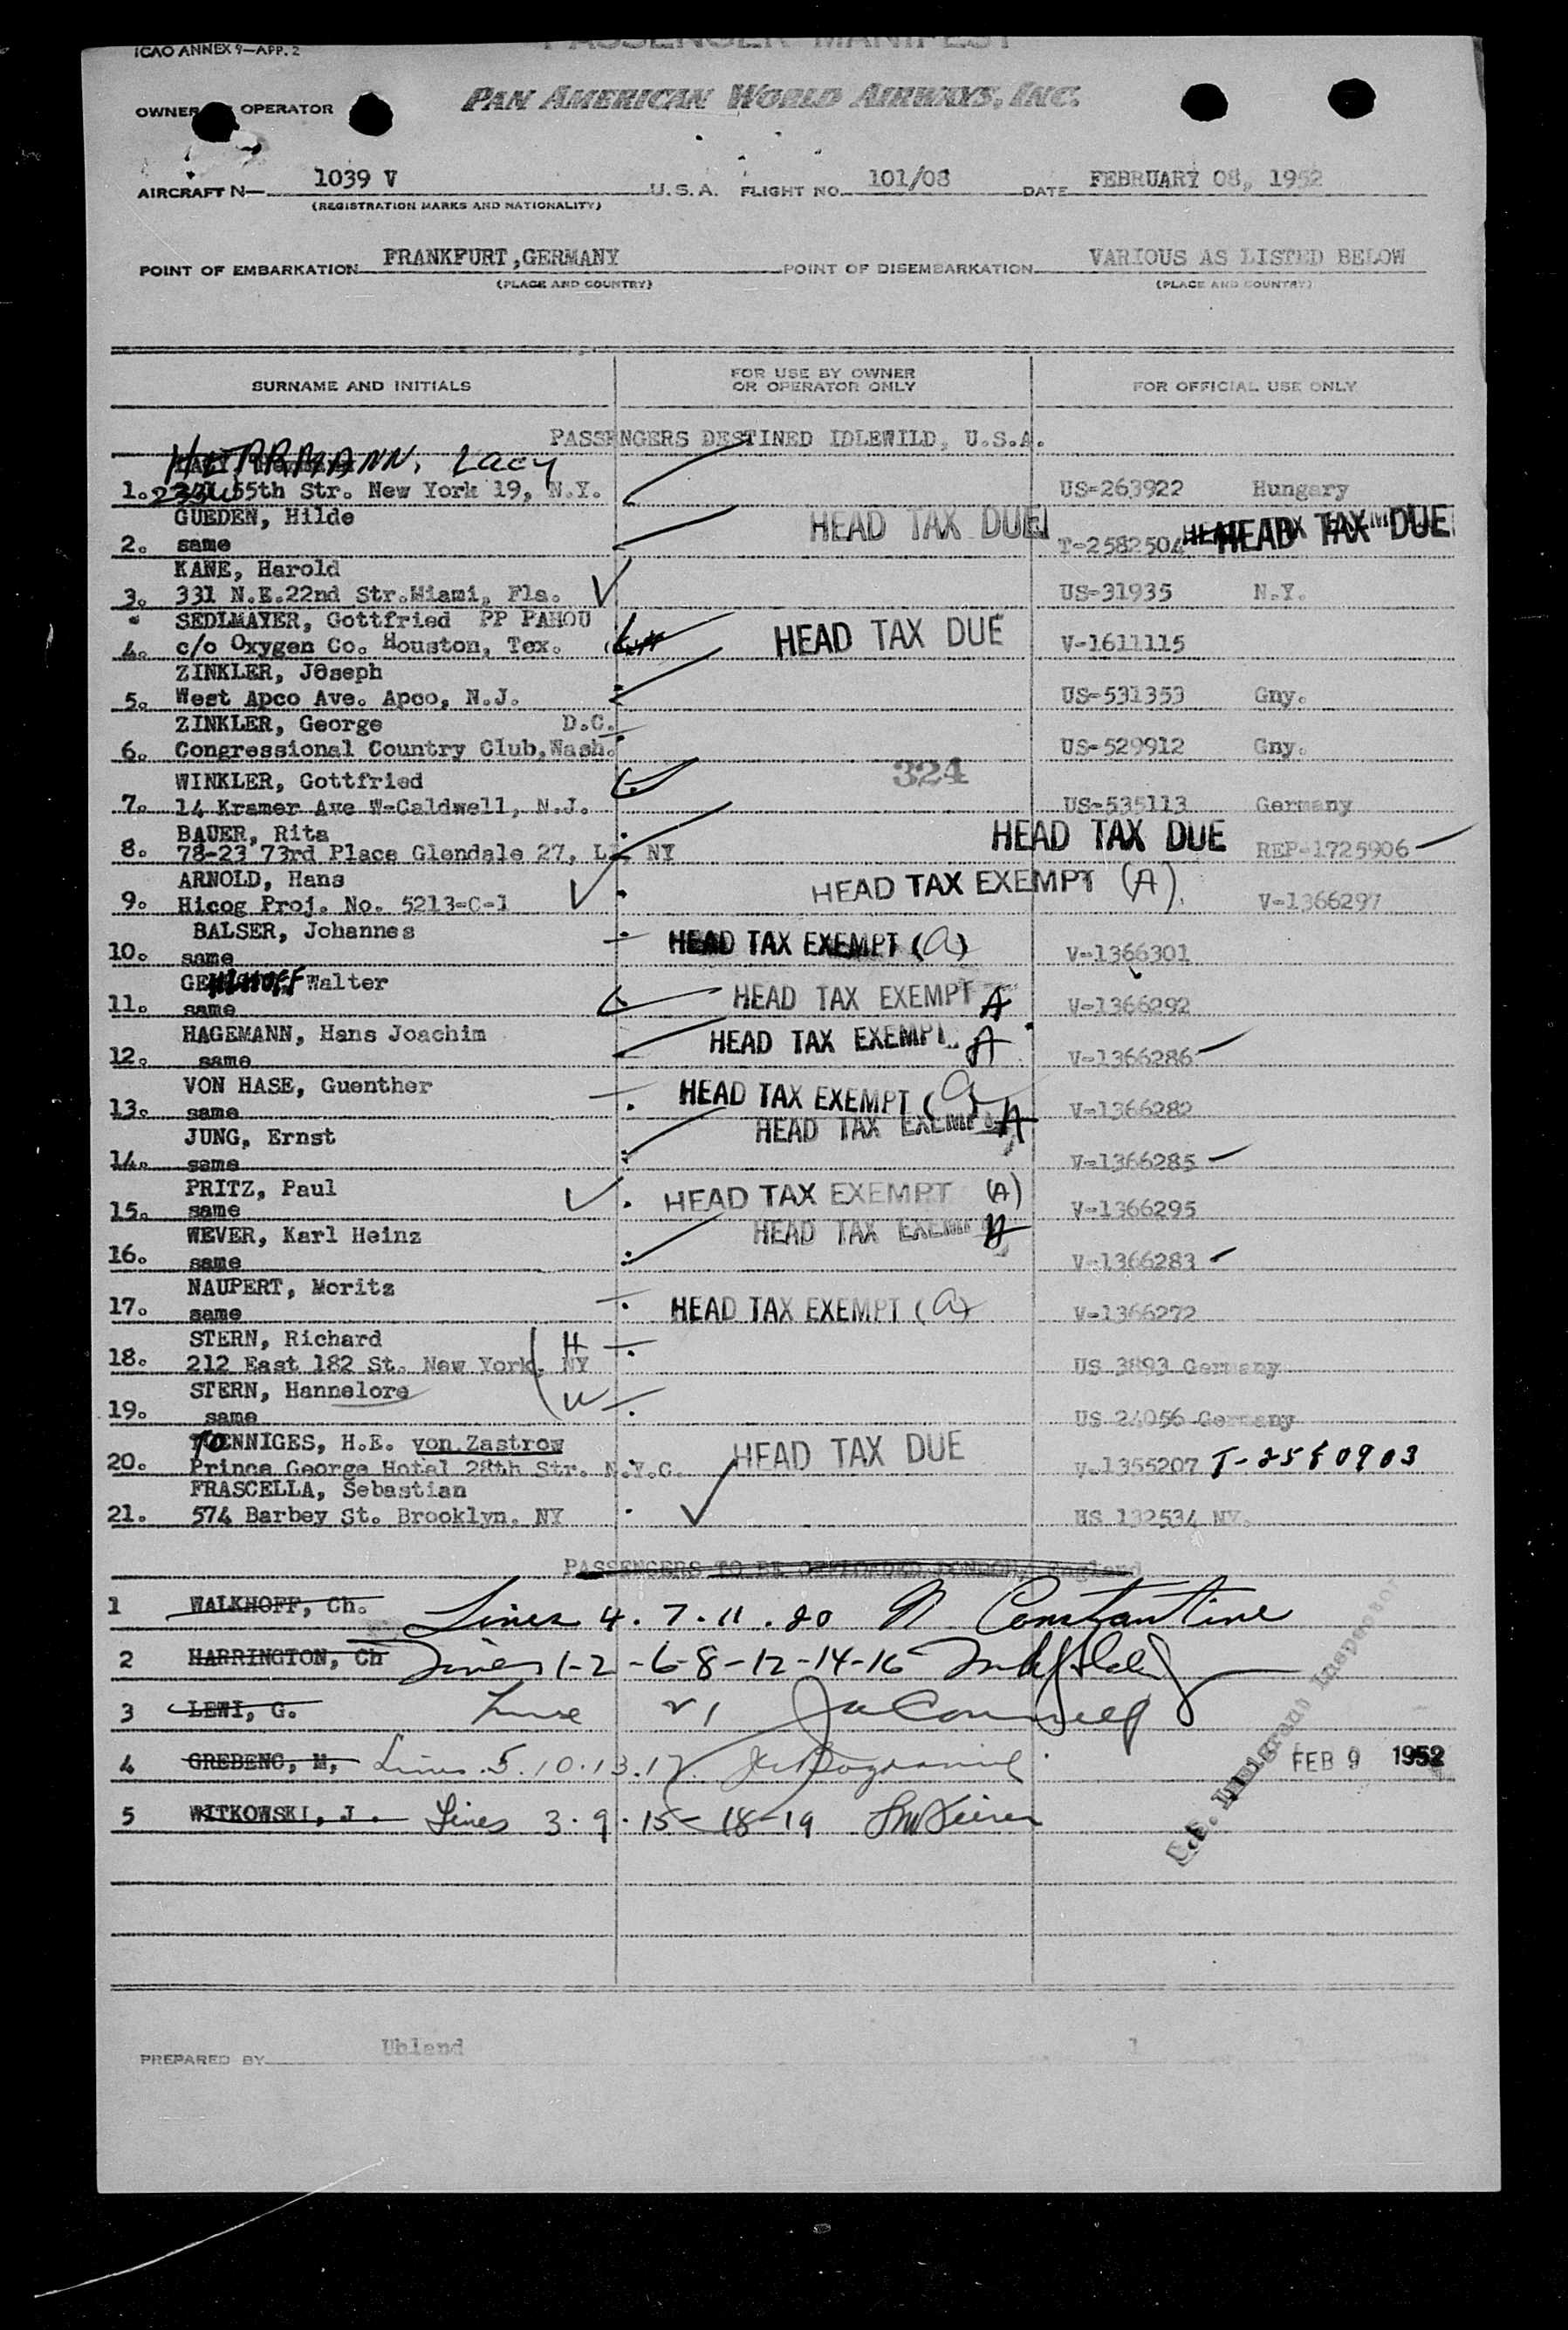 ICAO ANNEX 9—APP. 2
PASSENGER MANIFEST
OWNER OPERATOR PAN AMERICAN WORLD AIRWAYS, INC.
AIRCRAFT N— 1039 V U.S.A. FLIGHT NO. 101/08 DATE FEBRUARY 08, 1952
(REGISTRATION MARKS AND NATIONALITY)
POINT OF EMBARKATION FRANKFURT,GERMANY POINT OF DISEMBARKATION VARIOUS AS LISTED BELOW
(PLACE AND COUNTRY) (PLACE AND COUNTRY)
SURNAME AND INITIALS FOR USE BY OWNER OR OPERATOR ONLY FOR OFFICIAL USE ONLY
PASSENGERS DESTINED IDLEWILD, U.S.A.
HERRMANN, Lacy
1. 55th Str. New York 19, N.Y. US-263922 Hungary
GUEDEN, Hilde HEAD TAX DUE HEAD TAX DUE
2. same T-2582504
KANE, Harold
3. 331 N.E.22nd Str.Miami, Fla. US-31935 N.Y.
SEDLMAYER, Gottfried PP PAHOU HEAD TAX DUE
4. c/o Oxygen Co. Houston, Tex. V-1611115
ZINKLER, Joseph
5. West Apco Ave. Apco, N.J. US-531353 Gny.
ZINKLER, George D.C.
6. Congressional Country Club,Wash. US-529912 Gny.
WINKLER, Gottfried 324
7. 14 Kramer Ave W-Caldwell, N.J. US-535113 Germany
BAUER, Rita HEAD TAX DUE
8. 78-23 73rd Place Glendale 27, LI, NY REP-1725906
ARNOLD, Hans HEAD TAX EXEMPT (A)
9. Hicog Proj. No. 5213-C-1 V-1366297
BALSER, Johannes HEAD TAX EXEMPT (a)
10. same V-1366301
Walter HEAD TAX EXEMPT A
11. same V-1366292
HAGEMANN, Hans Joachim HEAD TAX EXEMPT A
12. same V-1366286
VON HASE, Guenther HEAD TAX EXEMPT (a)
13. same V-1366282
JUNG, Ernst HEAD TAX EXEMPT A
14. same V-1366285
PRITZ, Paul HEAD TAX EXEMPT (A)
15. same V-1366295
WEVER, Karl Heinz HEAD TAX EXEMPT
16. same V-1366283
NAUPERT, Moritz HEAD TAX EXEMPT (a)
17. same V-1366272
STERN, Richard H
18. 212 East 182 St. New York, NY US 3893 Germany
STERN, Hannelore W
19. same US 24056 Germany
TOENNIGES, H.E. von Zastrow HEAD TAX DUE
20. Prince George Hotel 28th Str. N.Y.C. V-1355207 T-2580903
FRASCELLA, Sebastian
21. 574 Barbey St. Brooklyn, NY US 132534 NY.
PASSENGERS TO BE OFFLOADED LONDON, England
1 WALKHOFF, Ch. Lines 4.7.11.20 N Constantine
2 HARRINGTON, Ch Lines 1-2-6-8-12-14-16
3 LEWI, G. Line 21
4 GREBENC, M, Lines 5.10.13.17
5 WITKOWSKI, J. Lines 3.9.15-18-19
U.S. Immigrant Inspector
FEB 9 1952
PREPARED BY Uhland 1